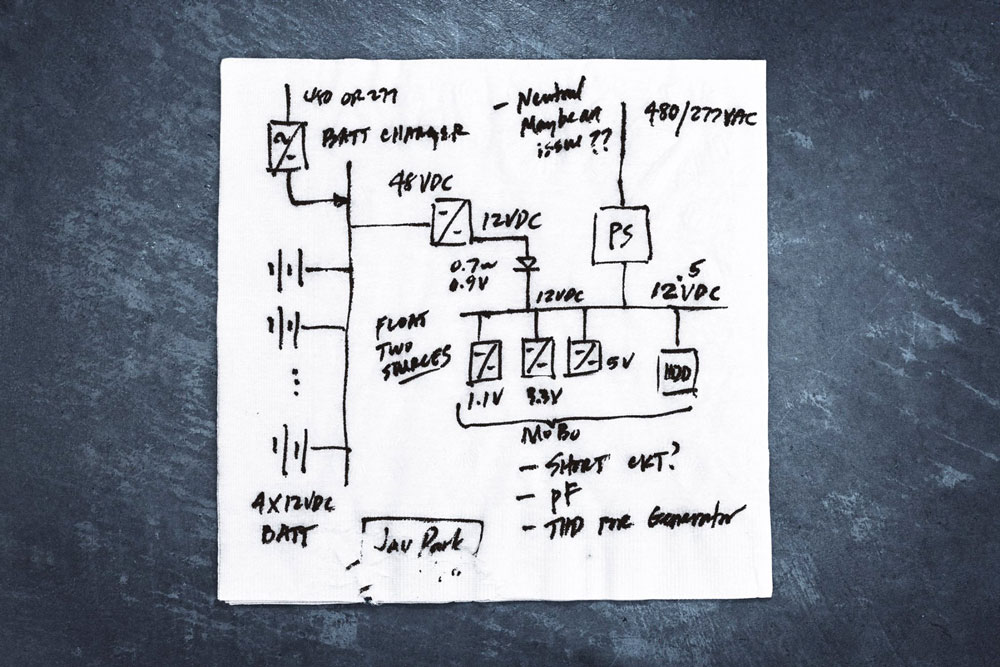 480 OR 277
BATT CHARGER
- Neutral
Maybe an
issue ??
480/277 VAC
48 VDC
12VDC
PS
0.7 ~
0.9V
12VDC
12.5 VDC
FLOAT
TWO
SOURCES
1.1V
3.3V
5V
HDD
MoBo
- SHORT CKT?
- PF
- THD FOR Generator
4X12VDC
BATT
Jay Park